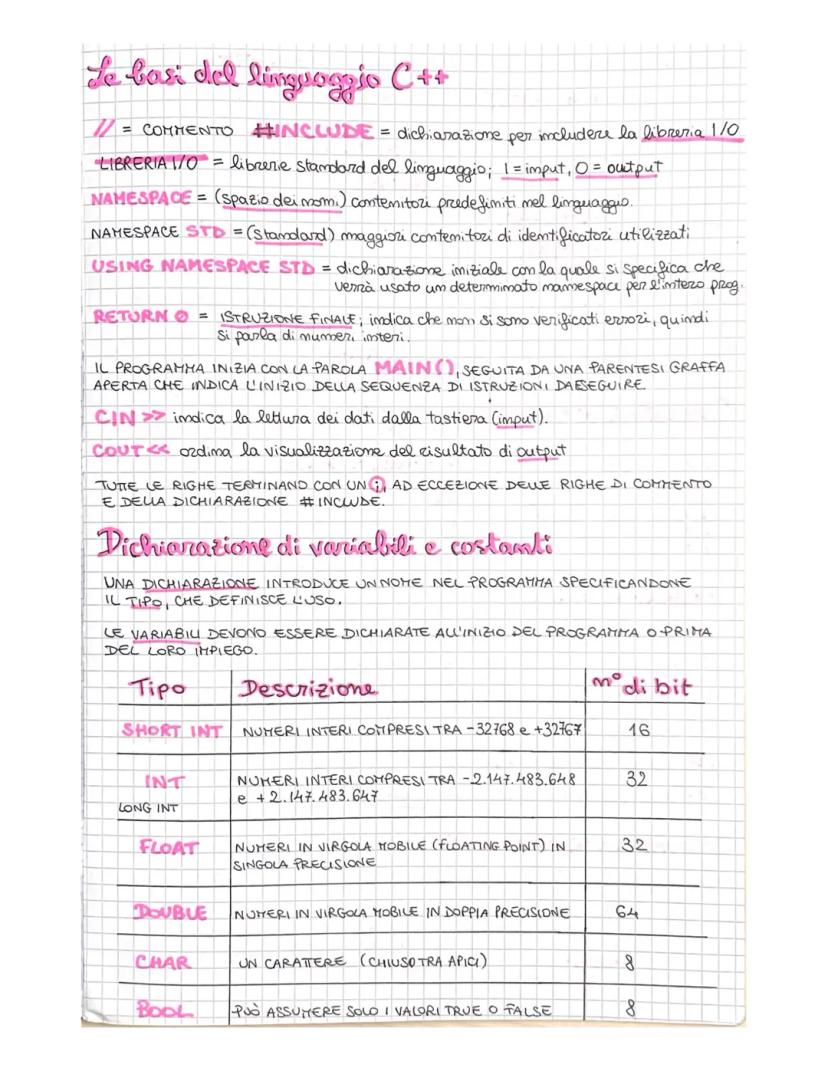 Le basi del linguaggio C++
// = COMMENTO #INCLUDE = dichiarazione per includere la libreria I/O
LIBRERIA I/O = librerie standard del linguaggio; I = input, O = output
NAMESPACE = (spazio dei nomi) contenitori predefiniti nel linguaggio.
NAMESPACE STD = (standard) maggiori contenitori di identificatori utilizzati
USING NAMESPACE STD = dichiarazione iniziale con la quale si specifica che
verrà usato un determinato namespace per l'intero prog.
RETURN 0 = ISTRUZIONE FINALE; indica che non si sono verificati errori, quindi
si parla di numeri interi.
IL PROGRAMMA INIZIA CON LA PAROLA MAIN(), SEGUITA DA UNA PARENTESI GRAFFA
APERTA CHE INDICA L'INIZIO DELLA SEQUENZA DI ISTRUZIONI DA ESEGUIRE.
CIN >> indica la lettura dei dati dalla tastiera (input).
COUT << ordina la visualizzazione del risultato di output
TUTTE LE RIGHE TERMINANO CON UN ;, AD ECCEZIONE DELLE RIGHE DI COMMENTO
E DELLA DICHIARAZIONE #INCLUDE.
Dichiarazione di variabili e costanti
UNA DICHIARAZIONE INTRODUCE UN NOME NEL PROGRAMMA SPECIFICANDONE
IL TIPO, CHE DEFINISCE L'USO.
LE VARIABILI DEVONO ESSERE DICHIARATE ALL'INIZIO DEL PROGRAMMA O PRIMA
DEL LORO IMPIEGO.
Tipo Descrizione n° di bit
SHORT INT NUMERI INTERI COMPRESI TRA -32768 e +32767 16
INT NUMERI INTERI COMPRESI TRA -2.147.483.648 32
LONG INT e +2.147.483.647
FLOAT NUMERI IN VIRGOLA MOBILE (FLOATING POINT) IN 32
SINGOLA PRECISIONE
DOUBLE NUMERI IN VIRGOLA MOBILE IN DOPPIA PRECISIONE 64
CHAR UN CARATTERE (CHIUSO TRA APICI) 8
BOOL PUÒ ASSUMERE SOLO I VALORI TRUE O FALSE 8